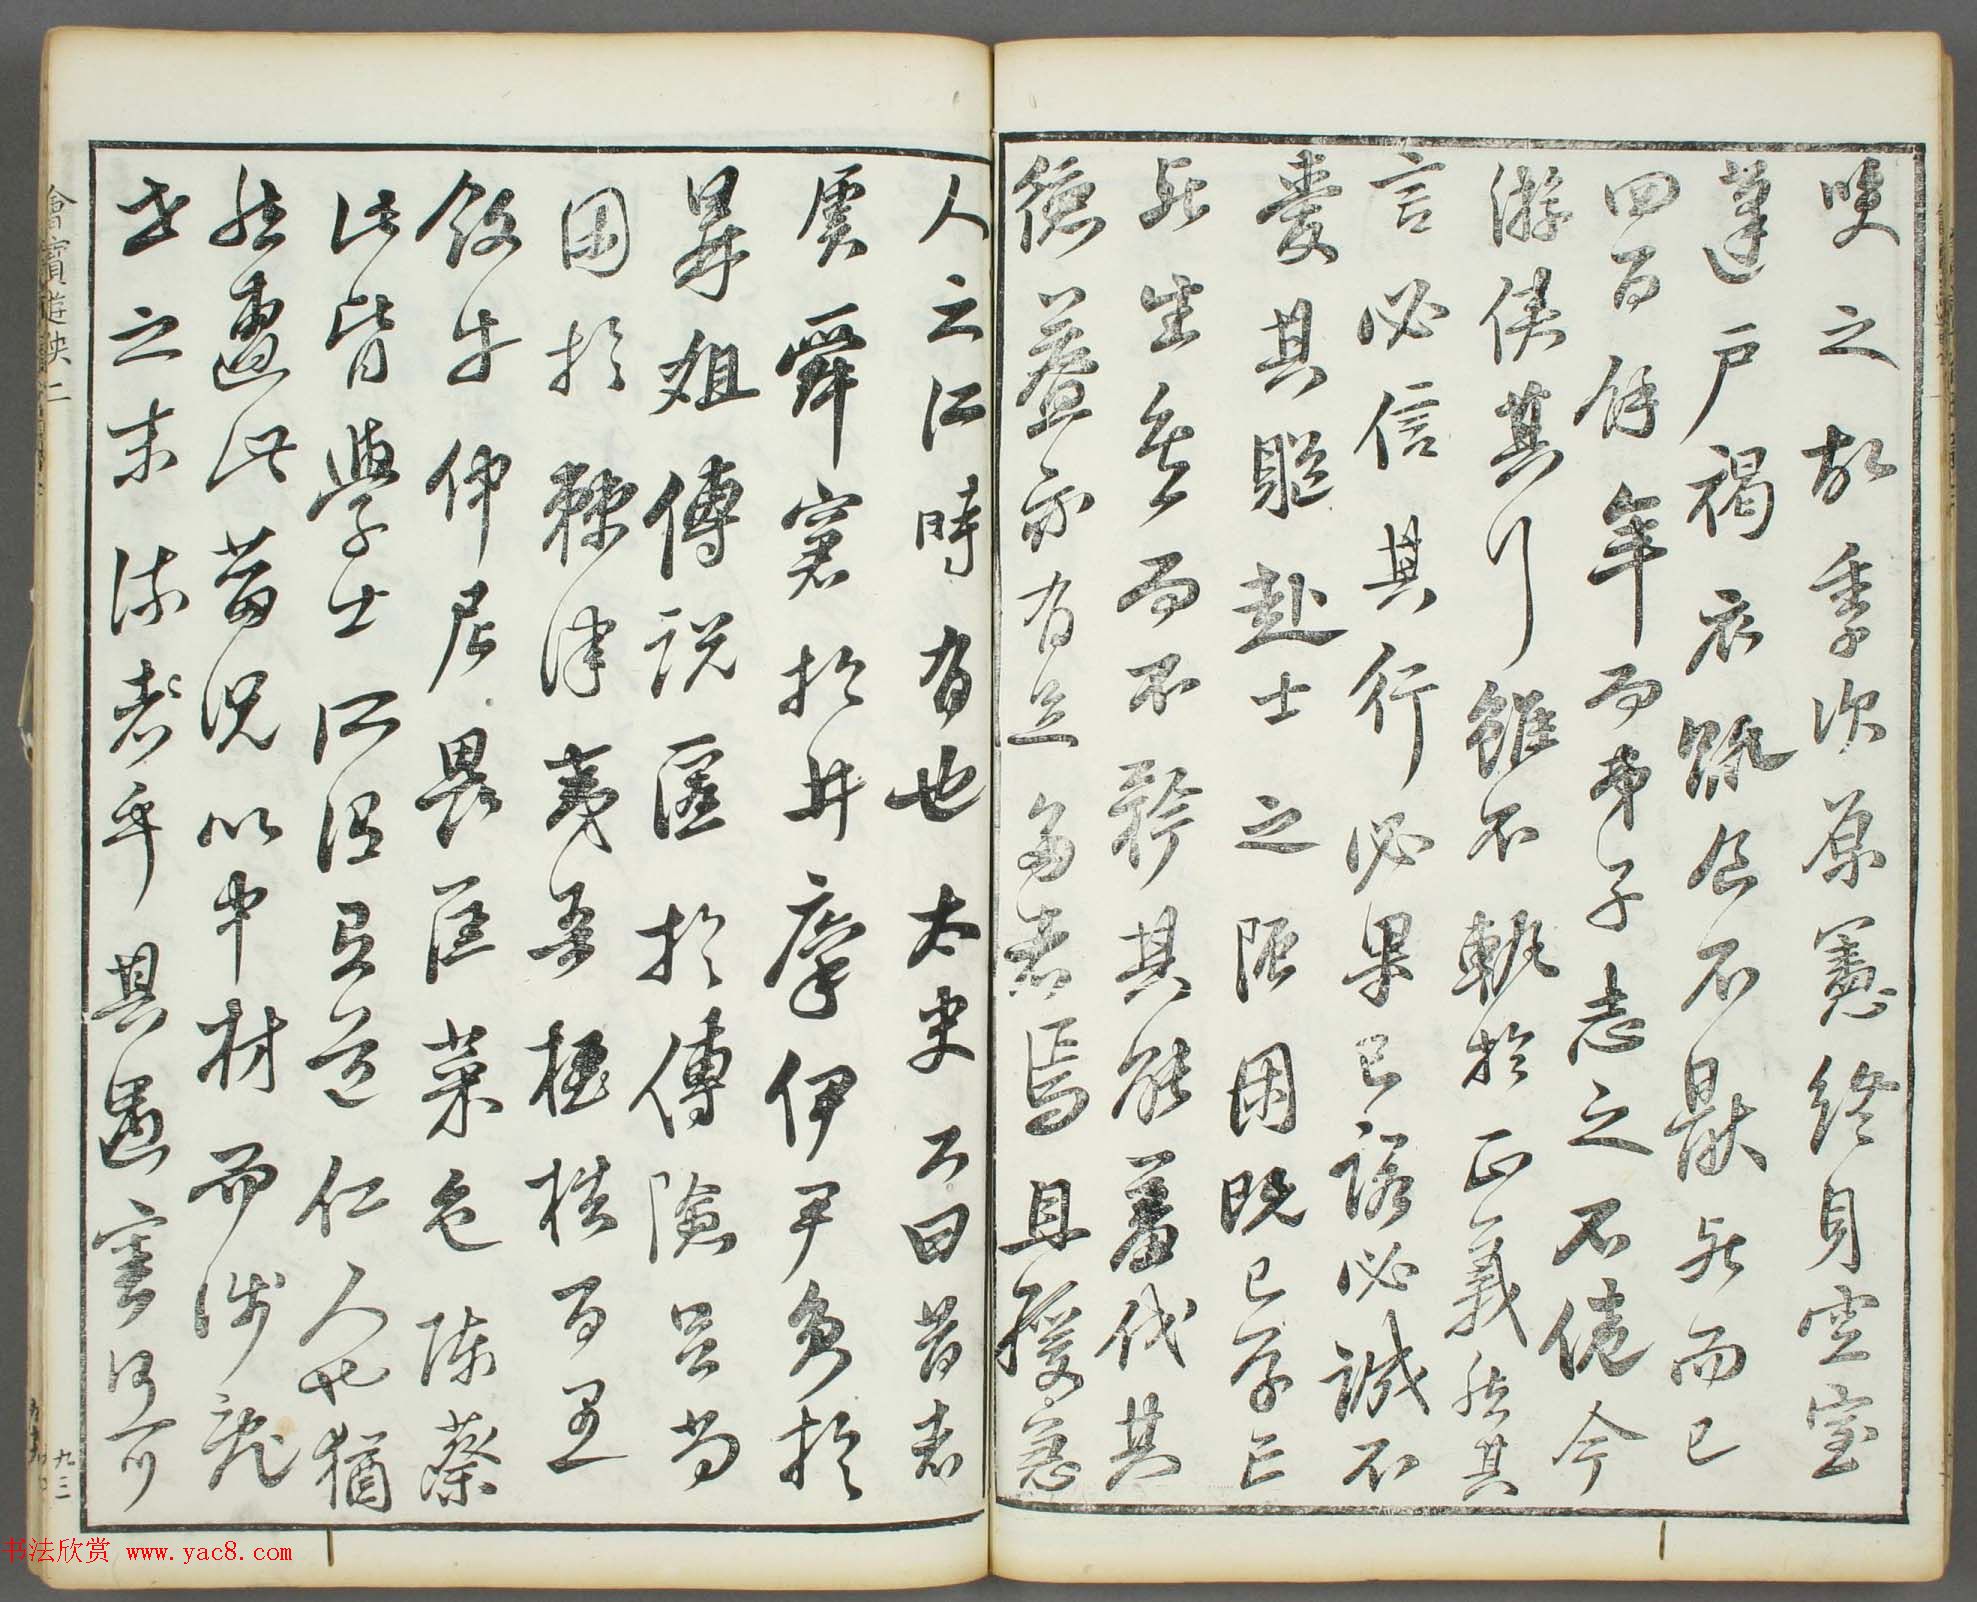 笑之故季次原憲終身空室
蓬戶褐衣疏食不厭死而已
四百餘年而弟子志之不倦今
游俠其行雖不軌於正義然其
言必信其行必果已諾必誠不
愛其軀赴士之阸困既已存亡
死生矣而不矜其能羞伐其
德蓋亦有足多者焉且緩急
人之所時有也太史公曰昔者
虞舜窘於井廩伊尹負於
鼎俎傅說匿於傅險呂尚
困於棘津夷吾桎梏百里
飯牛仲尼畏匡菜色陳蔡
此皆學士所謂有道仁人也猶
然遭此菑況以中材而涉亂
世之末流者乎其遇害何可
九三
书法欣赏 www.yac8.com